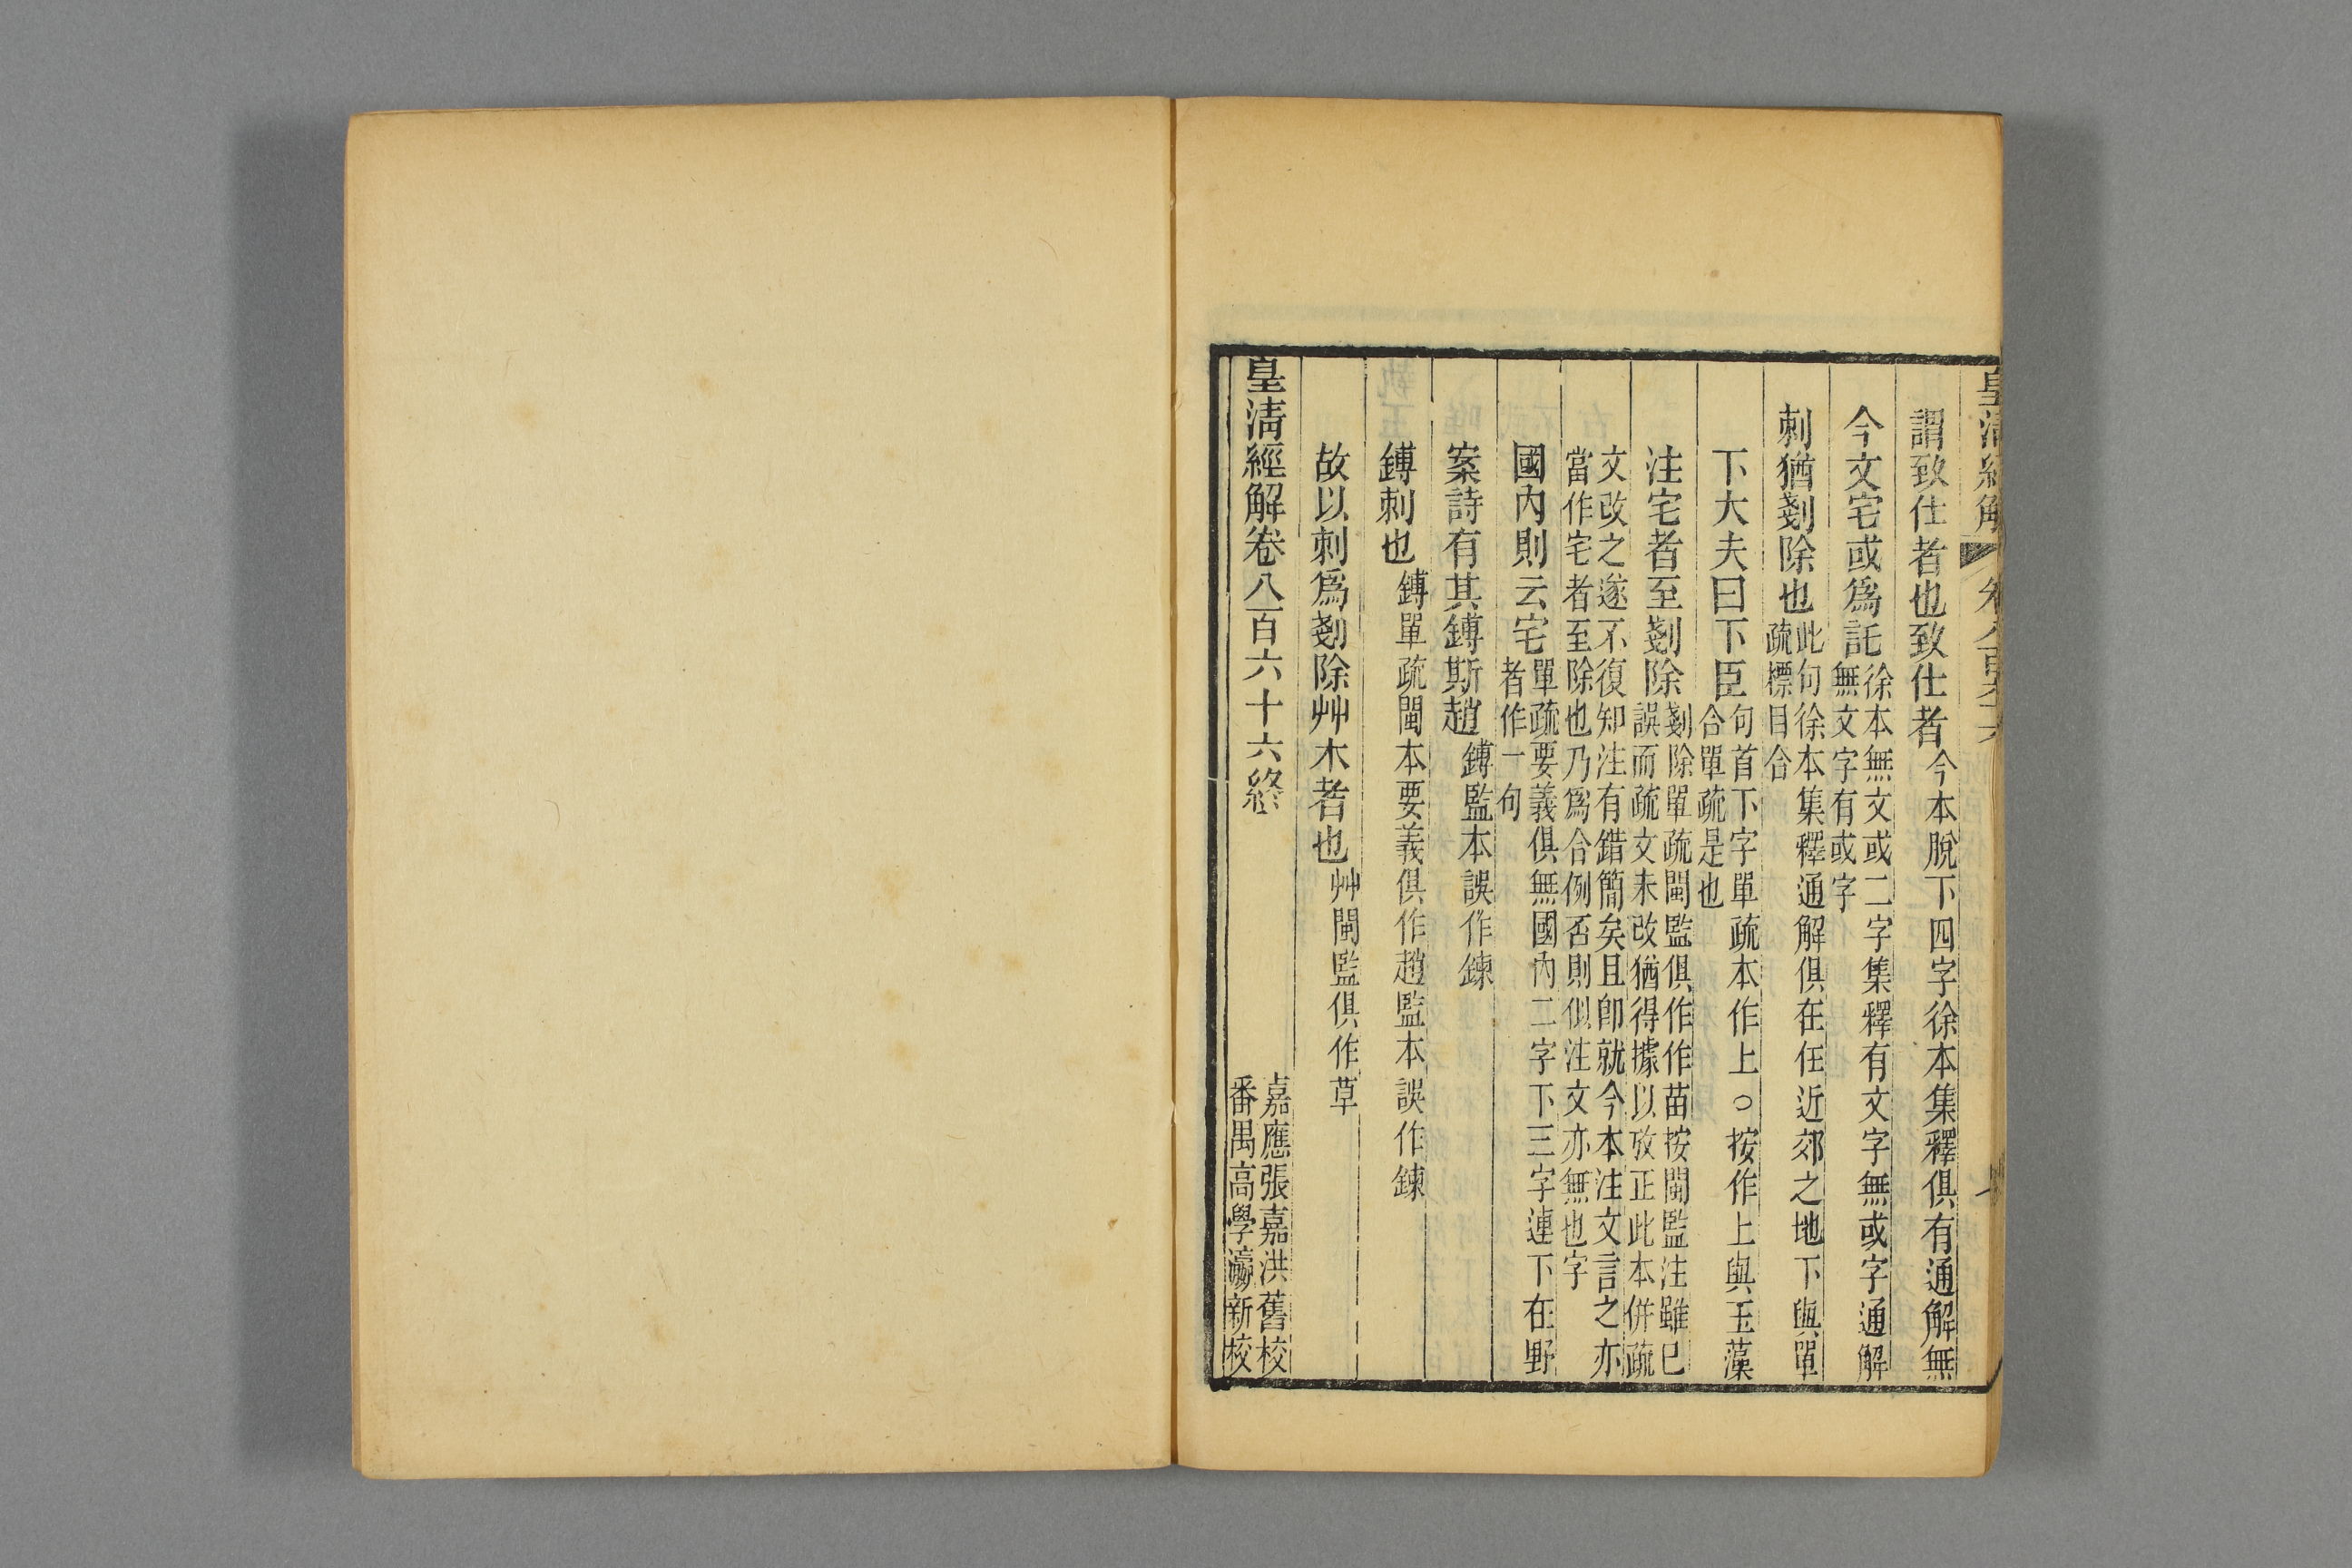 皇清經解 卷八百六十六
謂致仕者也致仕者今本脫下四字徐本集釋俱有通解無
今文宅或爲託徐本無文或二字集釋有文字無或字通解
無文字有或字
刺猶剗除也此句徐本集釋通解俱在任近郊之地下與單
疏標目合
下大夫曰下臣句首下字單疏本作上○按作上與玉藻
合單疏是也
注宅者至剗除剗除單疏閩監俱作作苗按閩監注雖已
誤而疏文未改猶得據以攷正此本併疏
文改之遂不復知注有錯簡矣且卽就今本注文言之亦
當作宅者至除也乃爲合例否則似注文亦無也字
國內則云宅單疏要義俱無國內二字下三字連下在野
者作一句
案詩有其鎛斯趙鎛監本誤作鍊
鎛刺也鎛單疏閩本要義俱作趙監本誤作鍊
故以刺爲剗除艸木者也艸閩監俱作草
皇清經解卷八百六十六終
嘉應張嘉洪舊校
番禺高學瀛新校